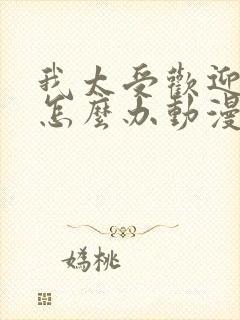 我太受歡迎
怎麼办動漫
嫣桃